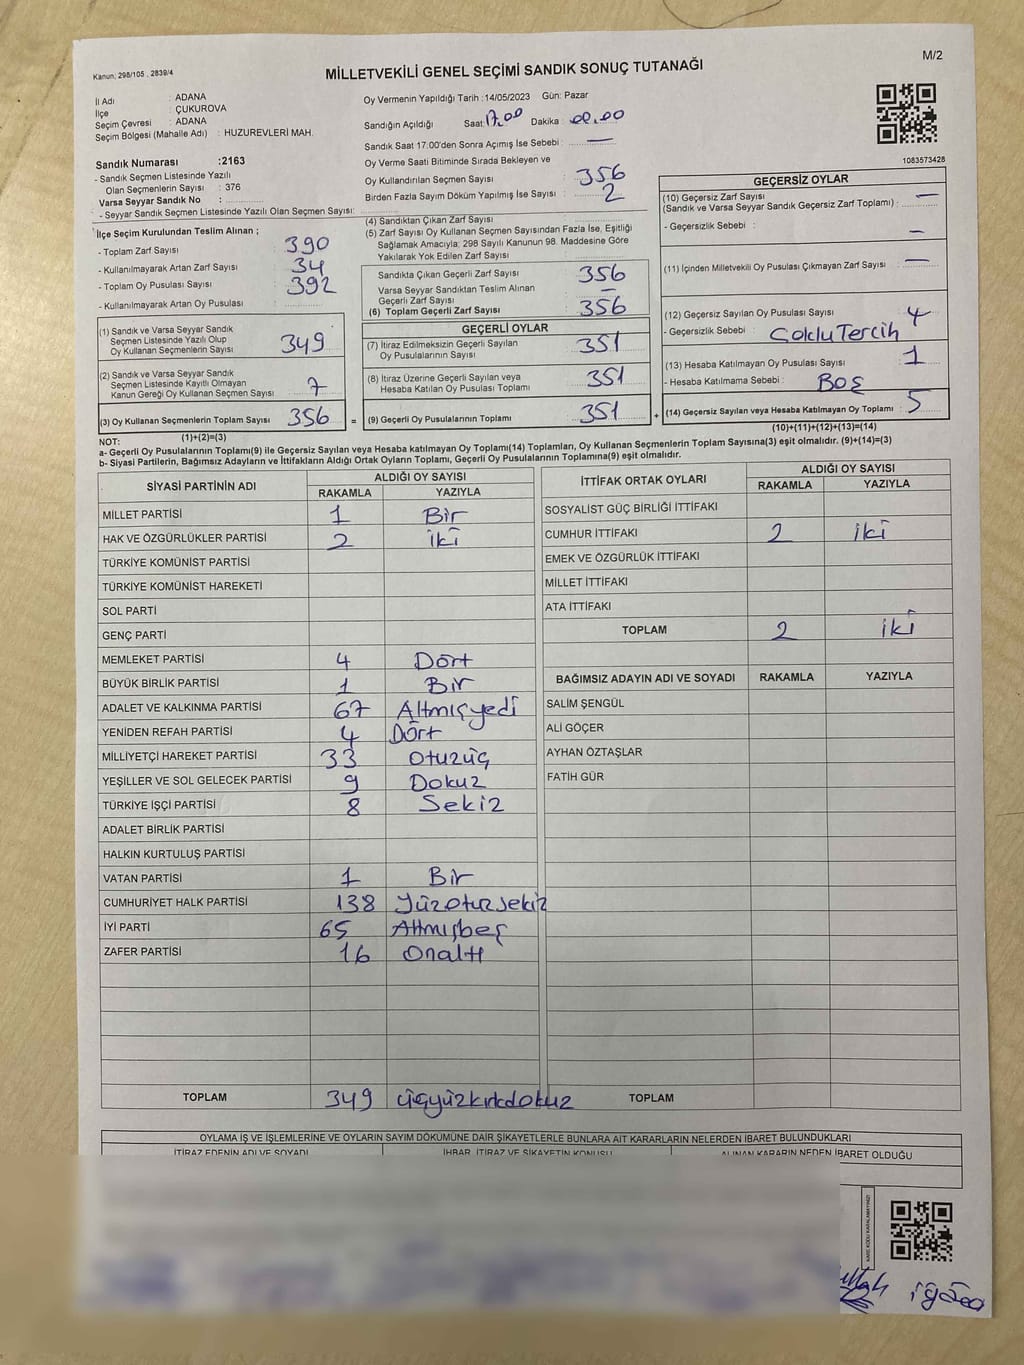 Kanun; 298/105 . 2839/4
MİLLETVEKİLİ GENEL SEÇİMİ SANDIK SONUÇ TUTANAĞI
M/2
İl Adı : ADANA
İlçe : ÇUKUROVA
Seçim Çevresi : ADANA
Seçim Bölgesi (Mahalle Adı) : HUZUREVLERİ MAH.
Sandık Numarası :2163
- Sandık Seçmen Listesinde Yazılı
Olan Seçmenlerin Sayısı : 376
Varsa Seyyar Sandık No :
- Seyyar Sandık Seçmen Listesinde Yazılı Olan Seçmen Sayısı:
Oy Vermenin Yapıldığı Tarih :14/05/2023 Gün: Pazar
Sandığın Açıldığı Saat: 17.00 Dakika : 00.00
Sandık Saat 17.00'den Sonra Açımış İse Sebebi : —
Oy Verme Saati Bitiminde Sırada Bekleyen ve
Oy Kullandırılan Seçmen Sayısı : 356
Birden Fazla Sayım Döküm Yapılmış İse Sayısı : 2
1083573428
İlçe Seçim Kurulundan Teslim Alınan ;
- Toplam Zarf Sayısı : 390
- Kullanılmayarak Artan Zarf Sayısı : 34
- Toplam Oy Pusulası Sayısı : 392
- Kullanılmayarak Artan Oy Pusulası :
(1) Sandık ve Varsa Seyyar Sandık
Seçmen Listesinde Yazılı Olup
Oy Kullanan Seçmenlerin Sayısı : 349
(2) Sandık ve Varsa Seyyar Sandık
Seçmen Listesinde Kayıtlı Olmayan
Kanun Gereği Oy Kullanan Seçmen Sayısı : 7
(3) Oy Kullanan Seçmenlerin Toplam Sayısı : 356
(1)+(2)=(3)
(4) Sandıktan Çıkan Zarf Sayısı :
(5) Zarf Sayısı Oy Kullanan Seçmen Sayısından Fazla İse, Eşitliği
Sağlamak Amacıyla; 298 Sayılı Kanunun 98. Maddesine Göre
Yakılarak Yok Edilen Zarf Sayısı :
Sandıkta Çıkan Geçerli Zarf Sayısı : 356
Varsa Seyyar Sandıktan Teslim Alınan
Geçerli Zarf Sayısı : —
(6) Toplam Geçerli Zarf Sayısı : 356
GEÇERLİ OYLAR
(7) İtiraz Edilmeksizin Geçerli Sayılan
Oy Pusulalarının Sayısı : 351
(8) İtiraz Üzerine Geçerli Sayılan veya
Hesaba Katılan Oy Pusulası Toplamı : 351
= (9) Geçerli Oy Pusulalarının Toplamı : 351 +
GEÇERSİZ OYLAR
(10) Geçersiz Zarf Sayısı
(Sandık ve Varsa Seyyar Sandık Geçersiz Zarf Toplamı) : —
- Geçersizlik Sebebi : —
(11) İçinden Milletvekili Oy Pusulası Çıkmayan Zarf Sayısı : —
(12) Geçersiz Sayılan Oy Pusulası Sayısı : 4
- Geçersizlik Sebebi : Çoklu Tercih
(13) Hesaba Katılmayan Oy Pusulası Sayısı : 1
- Hesaba Katılmama Sebebi : BOŞ
(14) Geçersiz Sayılan veya Hesaba Katılmayan Oy Toplamı : 5
(10)+(11)+(12)+(13)=(14)
NOT:
a- Geçerli Oy Pusulalarının Toplamı(9) ile Geçersiz Sayılan veya Hesaba katılmayan Oy Toplamı(14) Toplamları, Oy Kullanan Seçmenlerin Toplam Sayısına(3) eşit olmalıdır. (9)+(14)=(3)
b- Siyasi Partilerin, Bağımsız Adayların ve İttifakların Aldığı Ortak Oyların Toplamı, Geçerli Oy Pusulalarının Toplamına(9) eşit olmalıdır.
SİYASİ PARTİNİN ADI ALDIĞI OY SAYISI
RAKAMLA YAZIYLA
MİLLET PARTİSİ 1 Bir
HAK VE ÖZGÜRLÜKLER PARTİSİ 2 iki
TÜRKİYE KOMÜNİST PARTİSİ
TÜRKİYE KOMÜNİST HAREKETİ
SOL PARTİ
GENÇ PARTİ
MEMLEKET PARTİSİ 4 Dört
BÜYÜK BİRLİK PARTİSİ 1 Bir
ADALET VE KALKINMA PARTİSİ 67 Altmışyedi
YENİDEN REFAH PARTİSİ 4 Dört
MİLLİYETÇİ HAREKET PARTİSİ 33 otuzüç
YEŞİLLER VE SOL GELECEK PARTİSİ 9 Dokuz
TÜRKİYE İŞÇİ PARTİSİ 8 Sekiz
ADALET BİRLİK PARTİSİ
HALKIN KURTULUŞ PARTİSİ
VATAN PARTİSİ 1 Bir
CUMHURİYET HALK PARTİSİ 138 Yüzotuzsekiz
İYİ PARTİ 65 Altmışbeş
ZAFER PARTİSİ 16 Onaltı
TOPLAM 349 üçyüzkırkdokuz
İTTİFAK ORTAK OYLARI ALDIĞI OY SAYISI
RAKAMLA YAZIYLA
SOSYALİST GÜÇ BİRLİĞİ İTTİFAKI
CUMHUR İTTİFAKI 2 iki
EMEK VE ÖZGÜRLÜK İTTİFAKI
MİLLET İTTİFAKI
ATA İTTİFAKI
TOPLAM 2 iki
BAĞIMSIZ ADAYIN ADI VE SOYADI RAKAMLA YAZIYLA
SALİM ŞENGÜL
ALİ GÖÇER
AYHAN ÖZTAŞLAR
FATİH GÜR
TOPLAM
OYLAMA İŞ VE İŞLEMLERİNE VE OYLARIN SAYIM DÖKÜMÜNE DAİR ŞİKAYETLERLE BUNLARA AİT KARARLARIN NELERDEN İBARET BULUNDUKLARI
İTİRAZ EDENİN ADI VE SOYADI İHBAR, İTİRAZ VE ŞİKAYETİN KONUSU ALINAN KARARIN NEDEN İBARET OLDUĞU